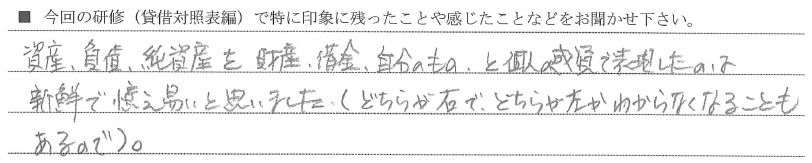 ■ 今回の研修（貸借対照表編）で特に印象に残ったことや感じたことなどをお聞かせ下さい。
資産、負債、純資産を財産、借金、自分のもの、と個人の感覚で表現したのは
新鮮で憶え易いと思いました（どちらが右で、どちらが左かわからなくなることも
あるので）。